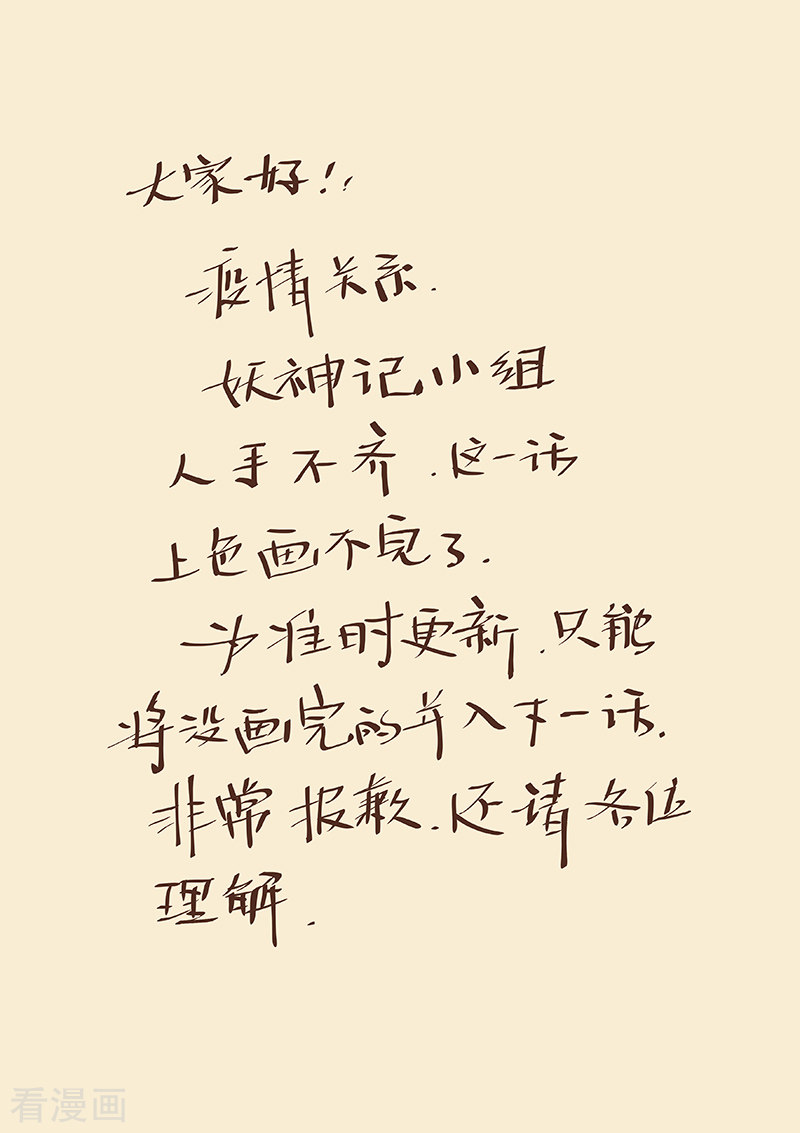 大家好!!
疫情关系.
妖神记小组
人手不齐.这一话
上色画不完了.
为准时更新.只能
将没画完的并入下一话.
非常报歉.还请各位
理解.
看漫画